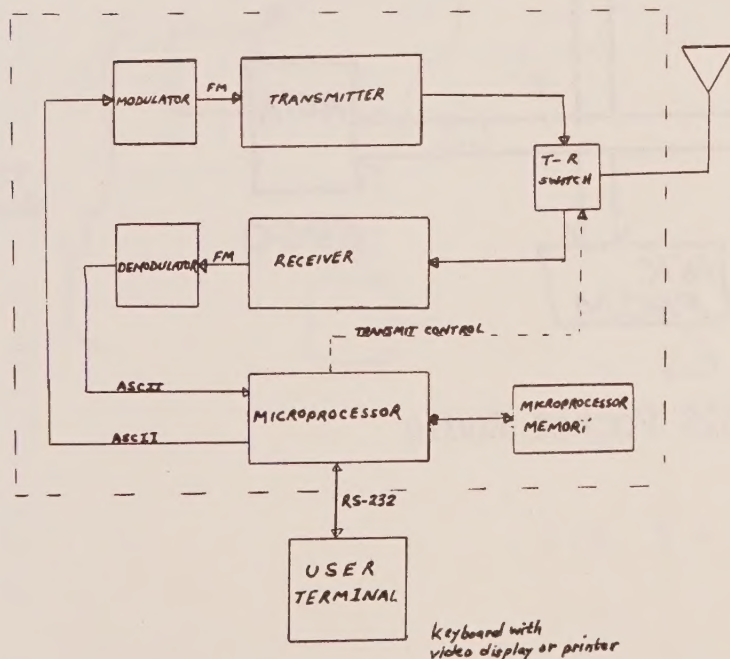 MODULATOR
FM
TRANSMITTER
T-R
SWITCH
DEMODULATOR
FM
RECEIVER
TRANSMIT CONTROL
ASCII
MICROPROCESSOR
MICROPROCESSOR
MEMORY
ASCII
RS-232
USER
TERMINAL
Keyboard with
video display or printer